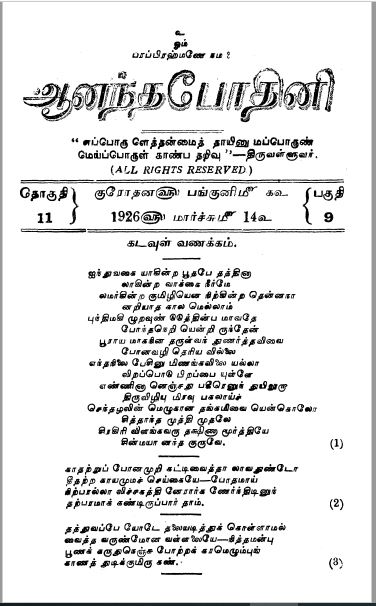 உ
ஓம்
பரப்பிரஹ்மணே நம:
ஆனந்தபோதினி
“ எப்பொரு ளெத்தன்மைத் தாயினு மப்பொருண்
மெய்ப்பொருள் காண்ப தறிவு ”—திருவள்ளுவர்.
(ALL RIGHTS RESERVED)
தொகுதி 11
குரோதன௵ பங்குனிமீ கஉ
1926௵ மார்ச்சுமீ 14உ
பகுதி 9
கடவுள் வணக்கம்.
ஐந்துவகை யாகின்ற பூதபே தத்தினா
லாகின்ற வாக்கை நீர்மே
லமர்கின்ற குமிழியென நிற்கின்ற தென்னநா
னறியாத கால மெல்லாம்
புந்திமகி ழுறவுண் டுடுத்தின்ப மாவதே
போந்தநெறி யென்றி ருந்தேன்
பூராய மாகநின தருள்வந் துணர்த்தவிவை
போனவழி தெரிய வில்லை
எந்தநிலை பேசினு மிணங்கவிலை யல்லா
விறப்பொடு பிறப்பை யுள்ளே
எண்ணினா னெஞ்சது பகீரெனுந் துயிலுறா
திருவிழியு மிரவு பகலாய்ச்
செந்தழலின் மெழுகான தங்கமிவை யென்கொலோ
சித்தாந்த முத்தி முதலே
சிரகிரி விளங்கவரு தக்ஷிணா மூர்த்தியே
சின்மயா னந்த குருவே. (1)
காதற்றுப் போனமுறி கட்டிவைத்தா லாவதுண்டோ
தீதற்ற காயமுமச் செய்கையே—போதமாய்
நிற்பரல்லா லிச்சகத்தி னேரார்க ணேர்ந்திடினுந்
தற்பரமாக் கண்டிருப்பார் தாம். (2)
தத்துவப்பே யோடே தலையடித்துக் கொள்ளாமல்
வைத்த வருண்மோன வள்ளலையே—நித்தமன்பு
பூணக் கருதுநெஞ்சு போற்றக் கரமெழும்புங்
காணத் துடிக்குமிரு கண். (3)